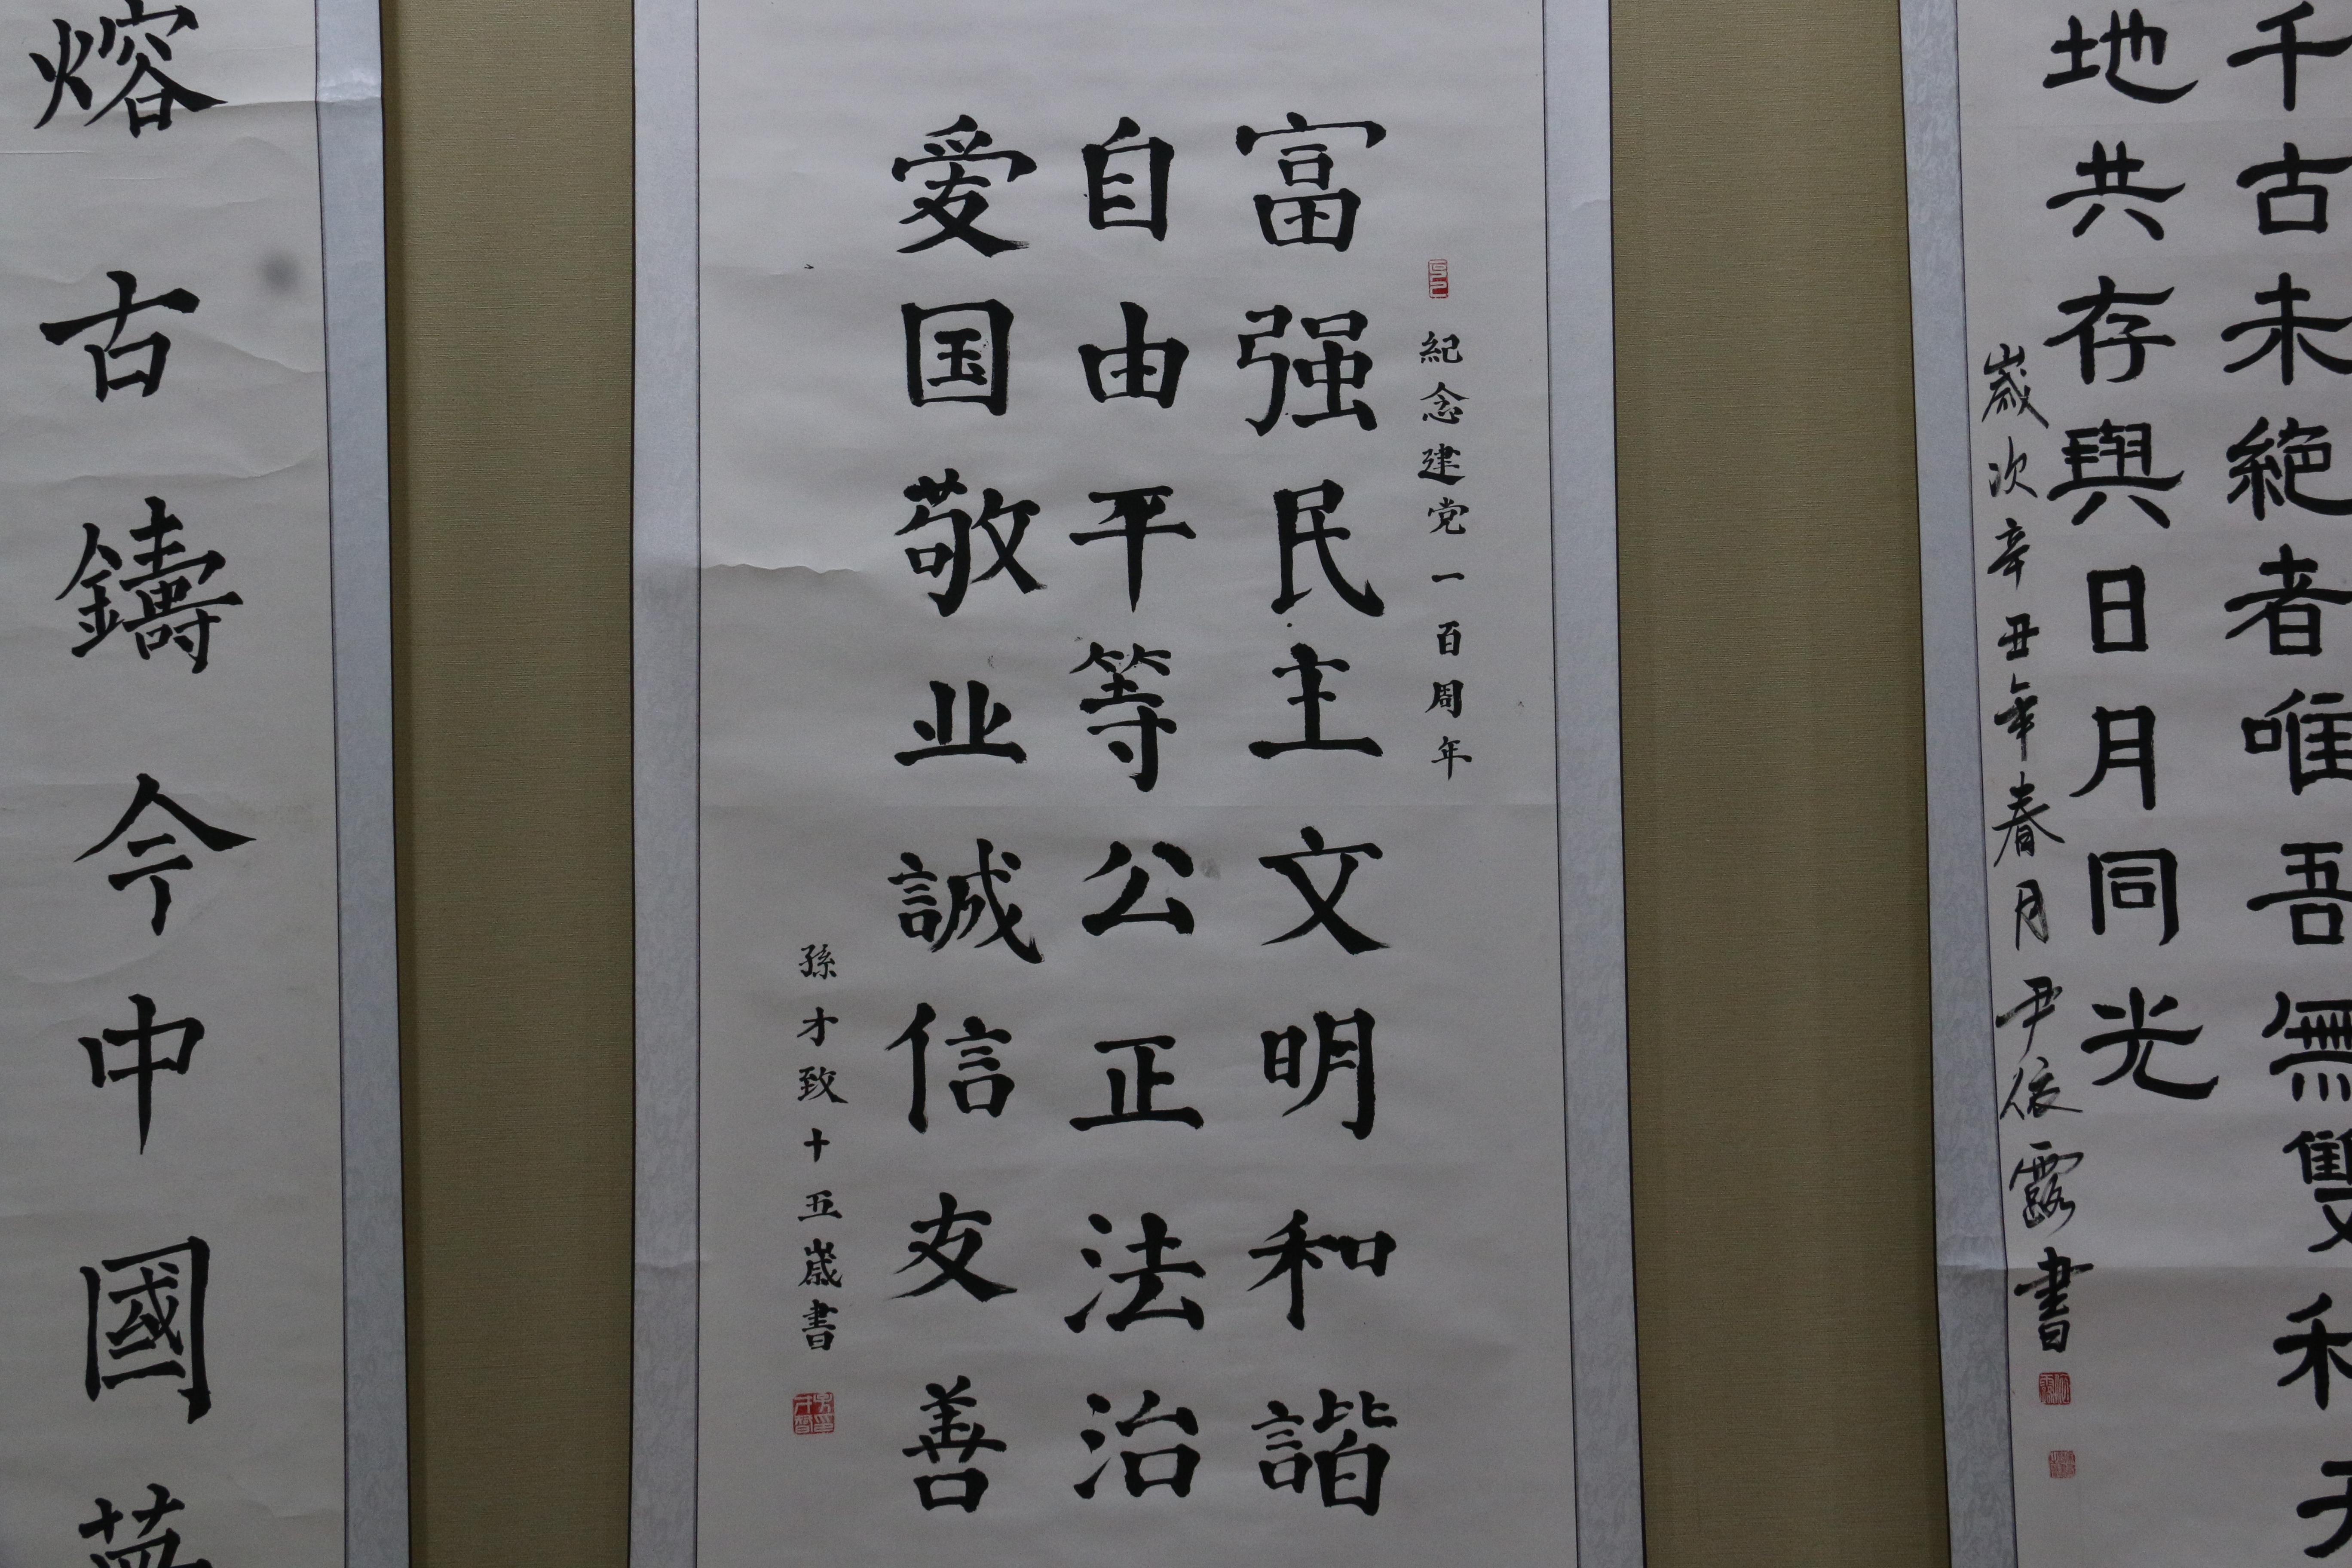 千古未絶者唯吾無雙
地共存與日月同光
歲次辛丑年春月尹依露書
紀念建党一百周年
富强民主文明和諧
自由平等公正法治
爱国敬业誠信友善
孫才致十五歲書
熔古鑄今中國